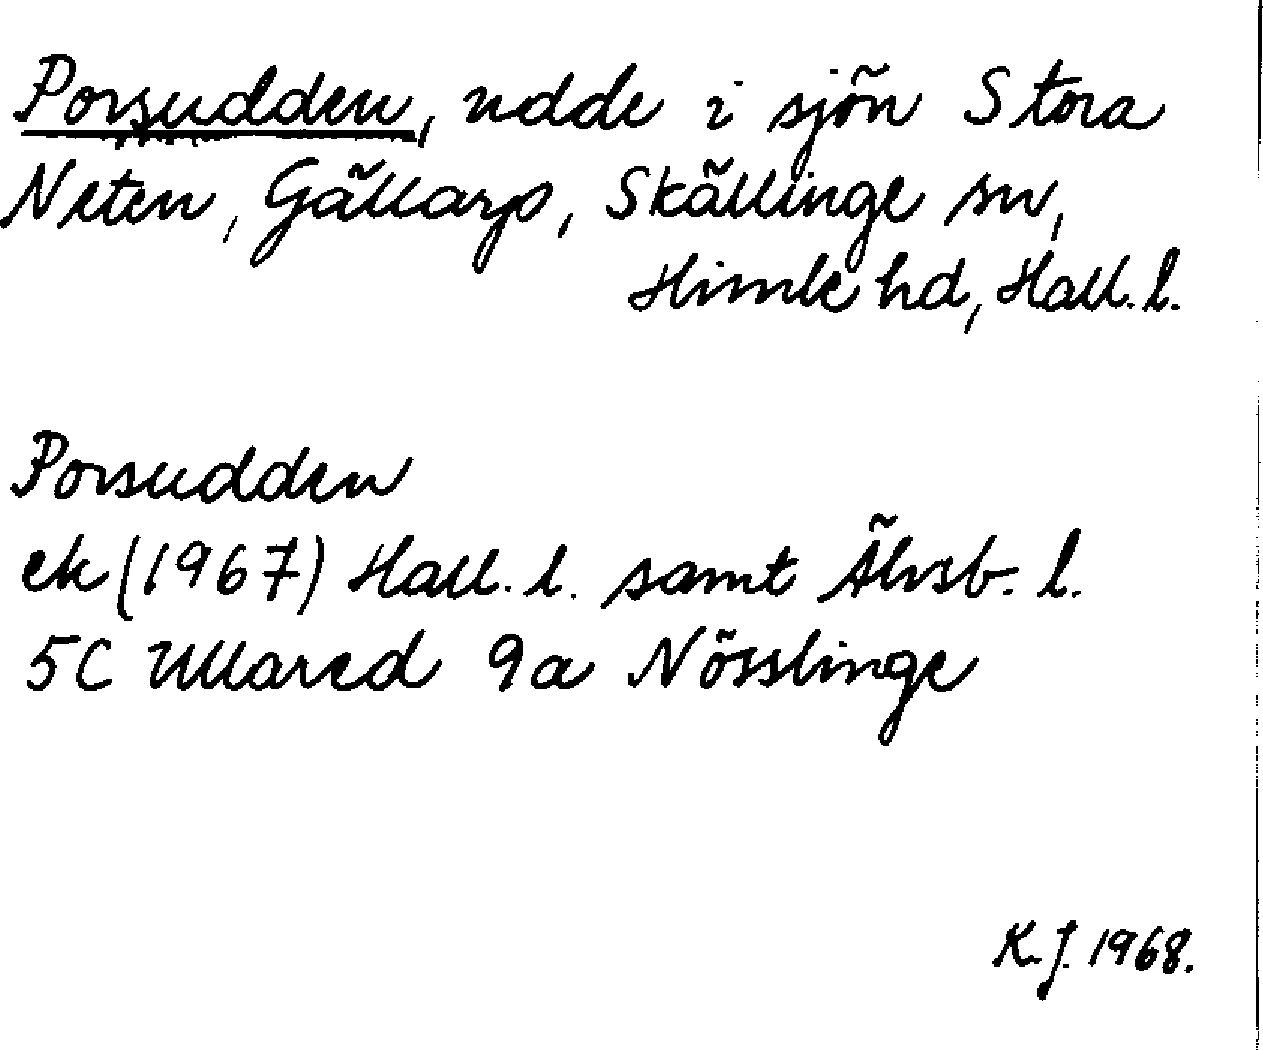 Porsudden, udde i sjön Stora
Neten, Gällarp, Skällinge sn,
Himle hd, Hall. l.
Porsudden
ek (1967) Hall. l. samt Älvsb. l.
5C Ullared 9a Nösslinge
K.J. 1968.